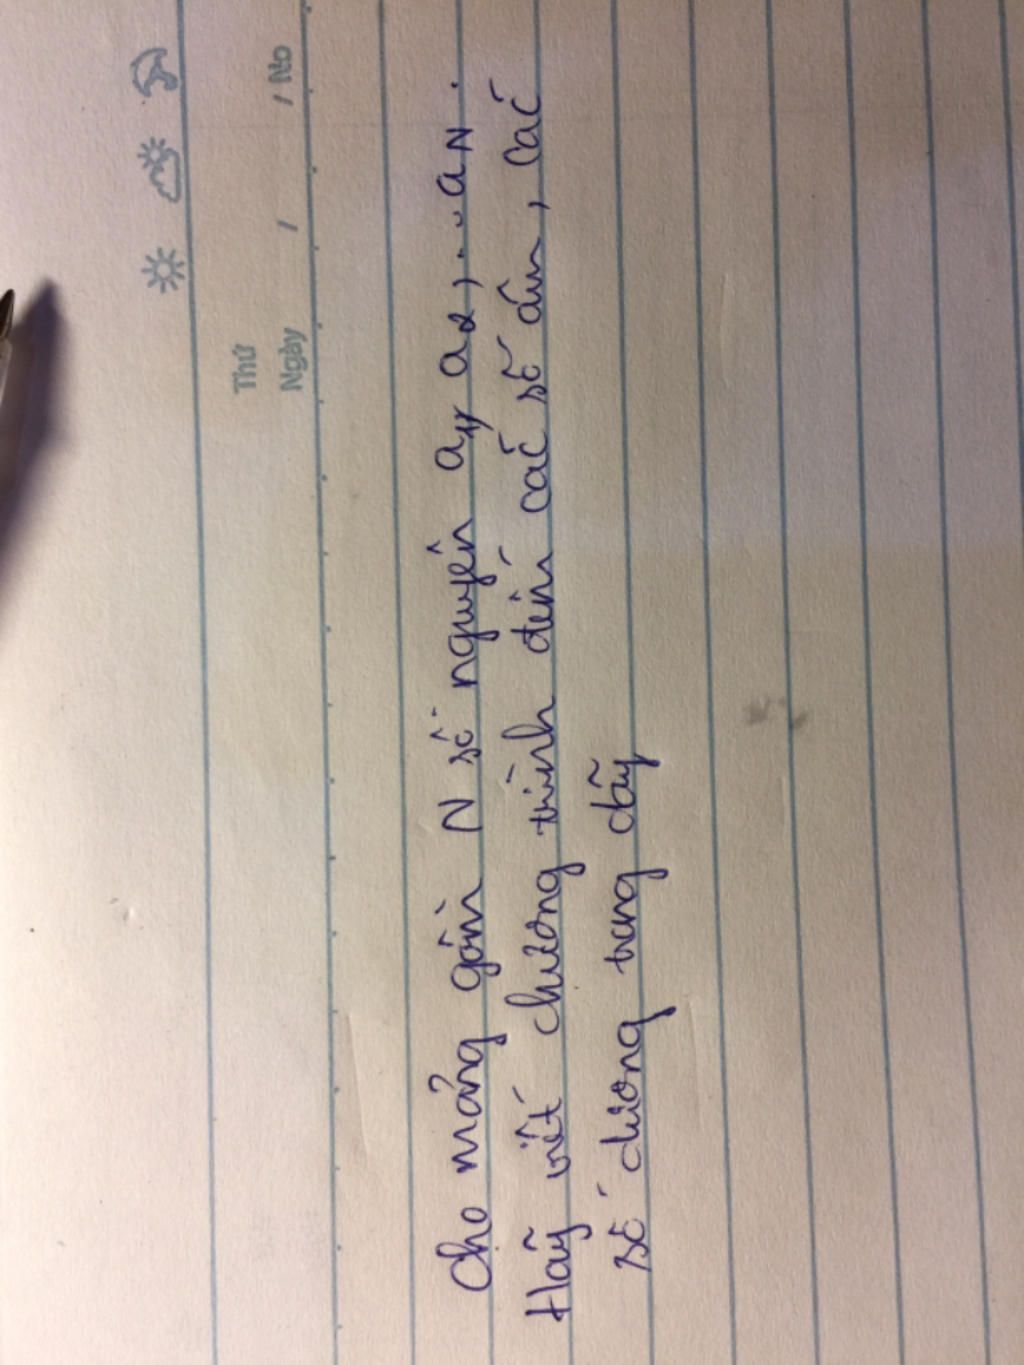 Thứ
Ngày / / No
Cho mảng gồm N số nguyên a1, a2, ... aN.
Hãy viết chương trình đếm các số âm, các
số dương trong dãy